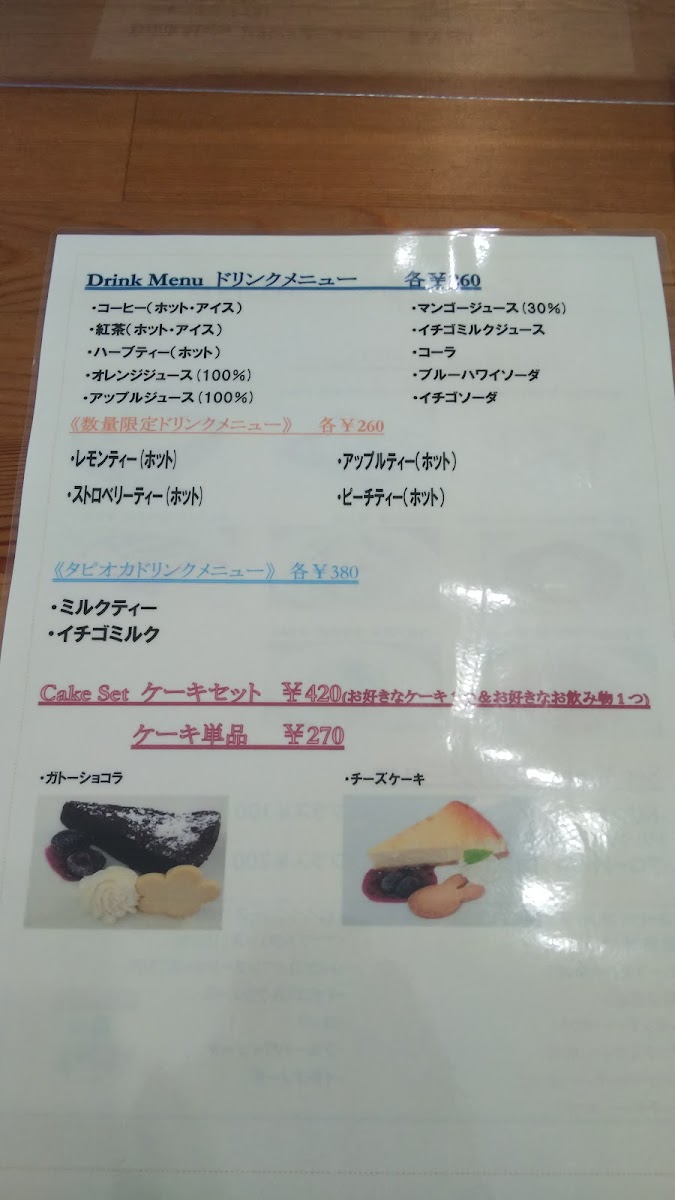 Drink Menu ドリンクメニュー 各￥260
・コーヒー（ホット・アイス）
・紅茶（ホット・アイス）
・ハーブティー（ホット）
・オレンジジュース（100％）
・アップルジュース（100％）
・マンゴージュース（30％）
・イチゴミルクジュース
・コーラ
・ブルーハワイソーダ
・イチゴソーダ
《数量限定ドリンクメニュー》 各￥260
・レモンティー（ホット）
・アップルティー（ホット）
・ストロベリーティー（ホット）
・ピーチティー（ホット）
《タピオカドリンクメニュー》 各￥380
・ミルクティー
・イチゴミルク
Cake Set ケーキセット ￥420(お好きなケーキ１つ＆お好きなお飲み物１つ)
ケーキ単品 ￥270
・ガトーショコラ
・チーズケーキ